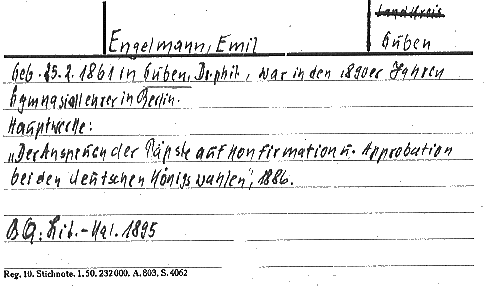 Landkreis
Engelmann, Emil
Guben
Geb. 25.2.1861 in Guben, Dr. phil., war in den 1890er Jahren
Gymnasiallehrer in Berlin.
Hauptwerke:
„Der Anspruch der Päpste auf Konfirmation u. Approbation
bei den deutschen Königswahlen", 1886.
BQ: Lit.-Kal. 1895
Reg. 10. Stichnote. 1. 50. 232000. A. 803, S. 4062